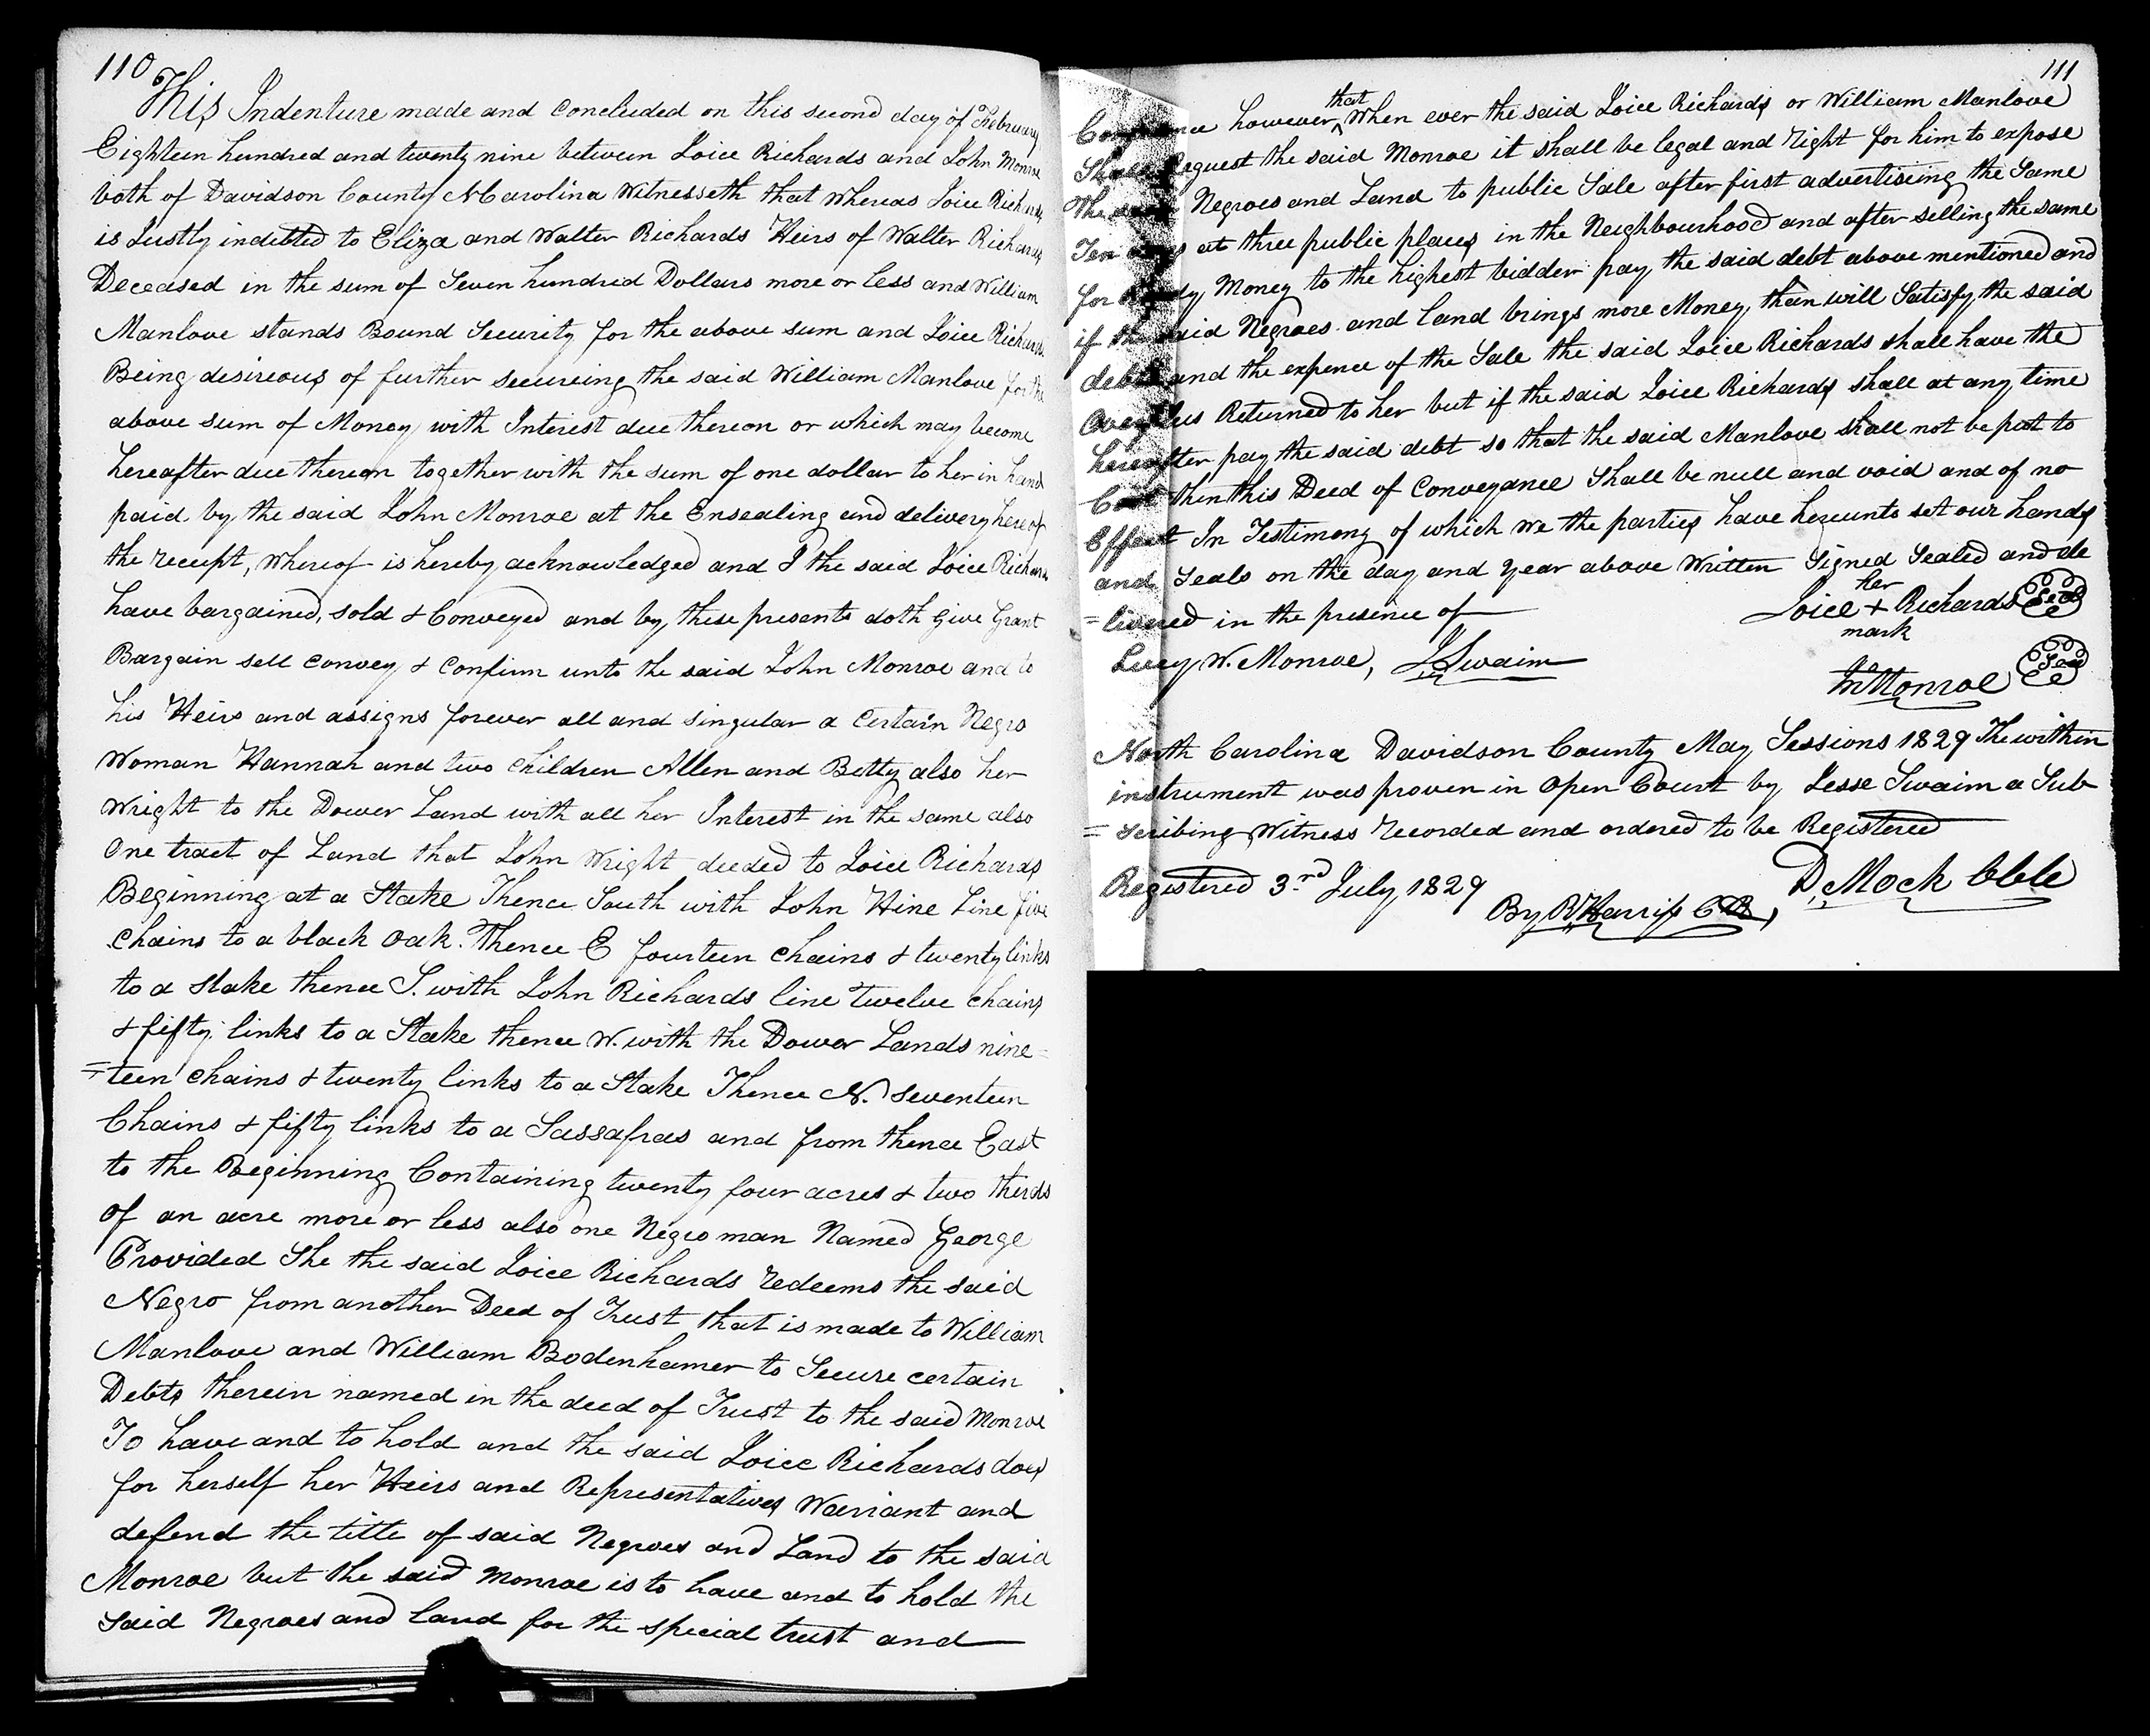 110
This Indenture made and concluded on this second day of February
Eighteen hundred and twenty nine between Joice Richards and John Monroe
both of Davidson County N Carolina Witnesseth that Whereas Joice Richards
is Justly indebted to Eliza and Walter Richards Heirs of Walter Richards
Deceased in the sum of Seven hundred Dollars more or less and William
Manlove stands Bound Security for the above sum and Joice Richards
Being desireous of further secureing the said William Manlove for the
above sum of Money with Interest due thereon or which may become
hereafter due thereon together with the sum of one dollar to her in hand
paid by the said John Monroe at the Ensealing and delivery hereof
the receipt, whereof is hereby acknowledged and I the said Joice Richards
have bargained, sold & Conveyed and by these presents doth Give Grant
Bargain sell convey & confirm unto the said John Monroe and to
his Heirs and assigns forever all and singular a Certain Negro
Woman Hannah and two children Allen and Betty also her
Wright to the Dower Land with all her Interest in the same also
One tract of Land that John Wright deeded to Joice Richards
Beginning at a Stake Thence South with John Hine Line five
chains to a black Oak. Thence E fourteen chains & twenty links
to a stake thence S. with John Richards line twelve chains
& fifty links to a Stake thence W. with the Dower Lands nine=
=teen chains & twenty links to a Stake Thence N. seventeen
Chains & fifty links to a Sassafras and from thence East
to the Beginning Containing twenty four acres & two therds
of an acre more or less also one Negro man Named George
Provided She the said Joice Richards redeems the said
Negro from another Deed of Trust that is made to William
Manlove and William Bodenhamer to Secure certain
Debts therein named in the deed of Trust to the said Monroe
To have and to hold and the said Joice Richards does
for herself her Heirs and Representatives Warriant and
defend the title of said Negroes and Land to the said
Monroe but the said Monroe is to have and to hold the
said Negroes and land for the special trust and
111
however that When ever the said Joice Richards or William Manlove
Shall Request the said Monroe it shall be legal and right for him to expose
the Negroes and Land to public Sale after first advertiseing the Same
Ten days at three public places in the Neighbourhood and after selling the same
for Ready Money to the highest bidder pay the said debt above mentioned and
if the said Negroes and land brings more Money than will Satisfy the said
debt and the expence of the Sale the said Joice Richards shall have the
Overplus Returned to her but if the said Joice Richards shall at any time
hereafter pay the said debt so that the said Manlove shall not be put to
Cost then this Deed of Conveyance Shall be null and void and of no
Effect In Testimony of which we the parties have hereunto set our hands
and Seals on the day and year above Written Signed Sealed and de
=livered in the presence of
Joice her + mark Richards Seal
Lucy W. Monroe, J Swaim
Jn Monroe Seal
North Carolina Davidson County May Sessions 1829 The within
instrument was proven in Open Court by Jesse Swaim a Sub
=scribing Witness recorded and ordered to be Registered
Registered 3.rd July 1829
D Mock Clk
By R Harriss